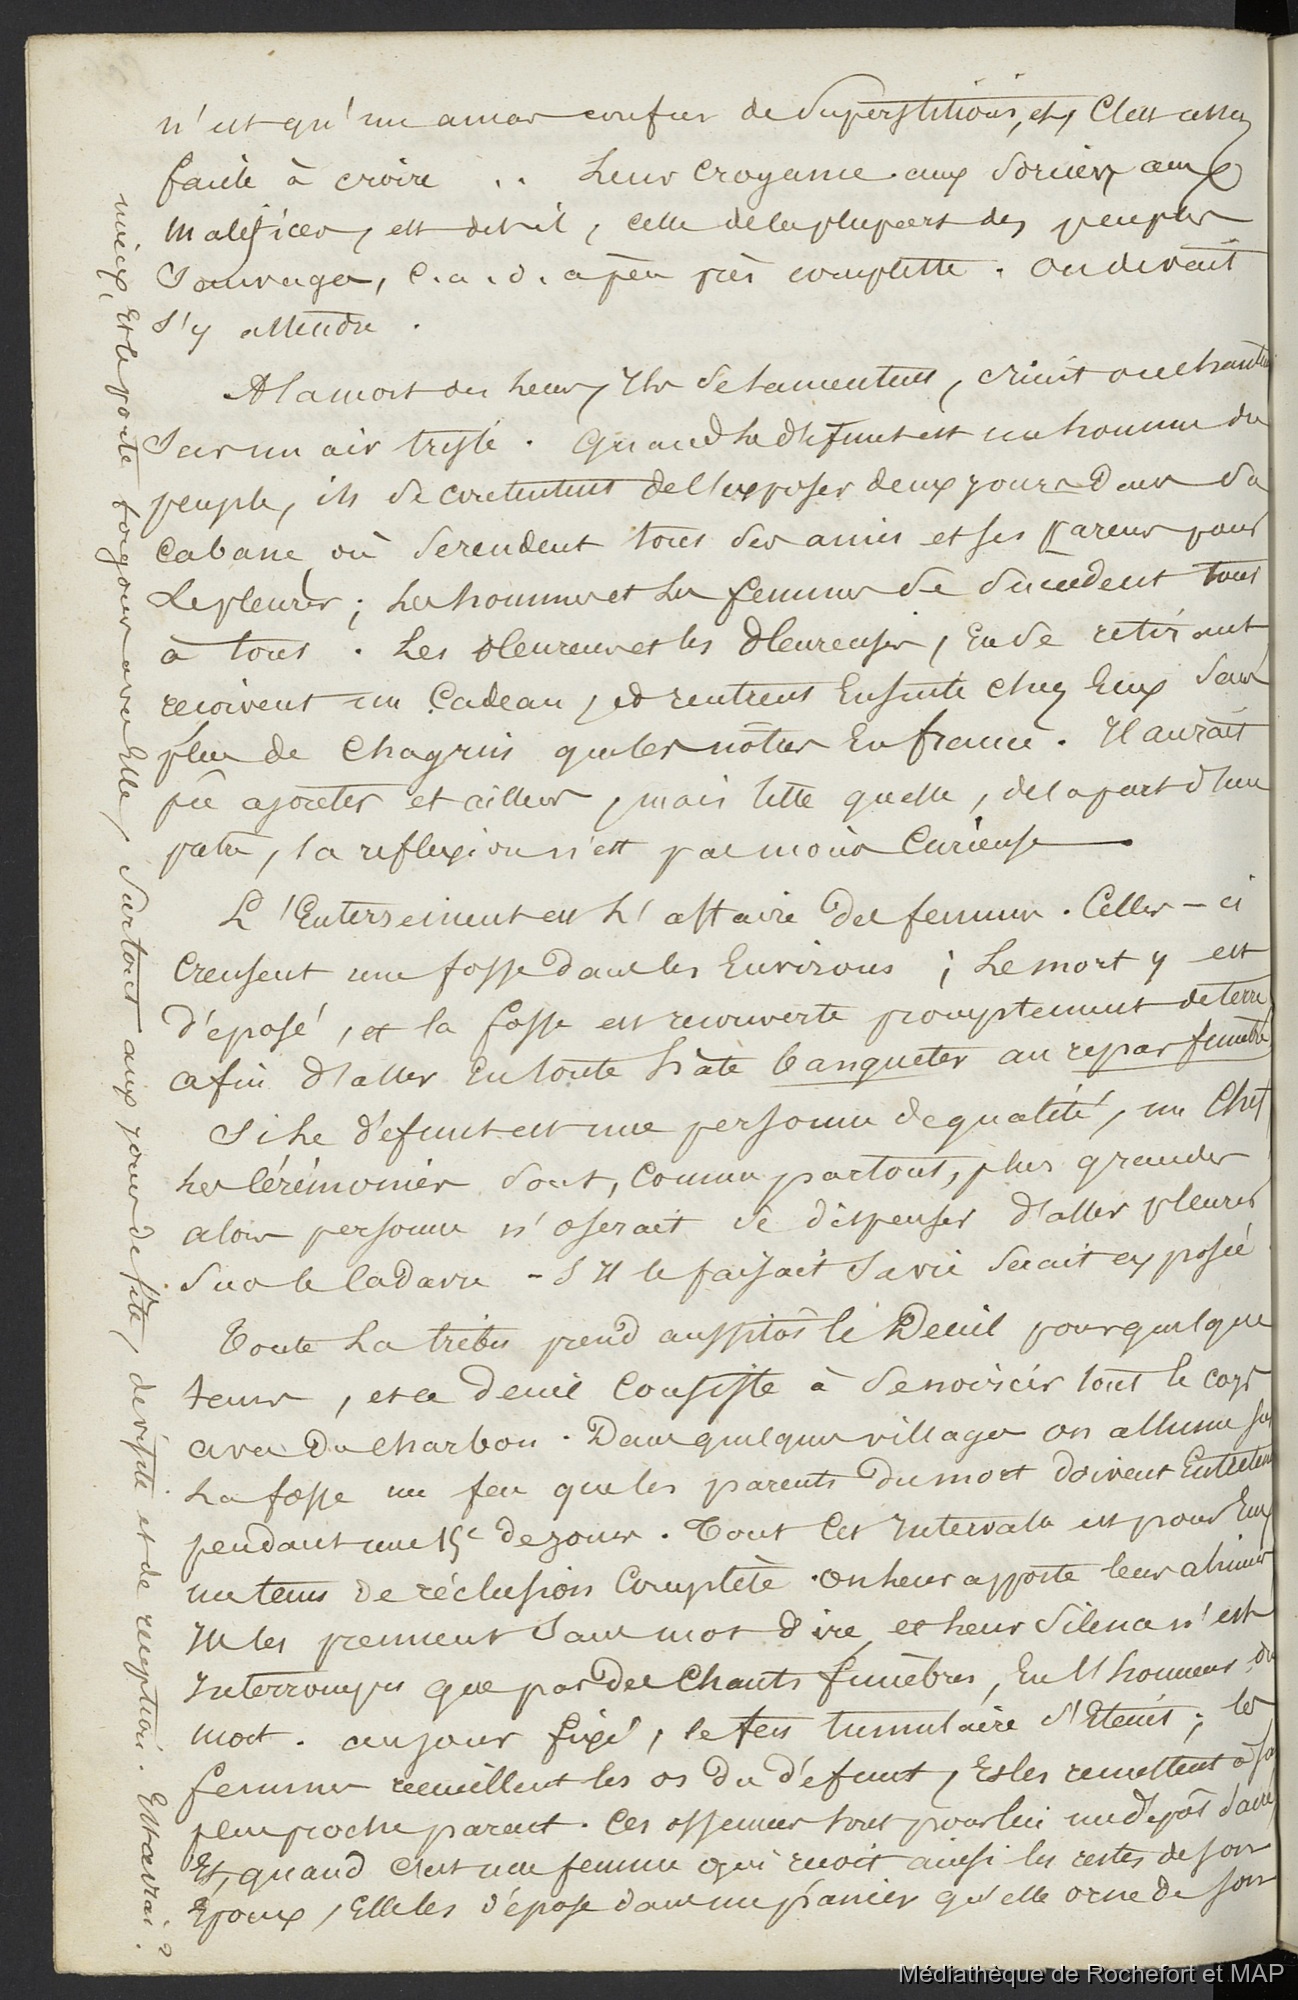 n'est qu'un amas confus de Superstitions, et, C'est assez
facile à croire .. Leur Croyance aux Sorciers, aux
Maléfices, est dit-il, celle de la plupart des peuples
Sauvages, c.a.d. a peu près complette. On devait
S'y attendre.
A la mort des leurs, Ils se lamentent, crient ou chantent
Sur un air triste. Quand le défunt est un homme du
peuple, ils se contentent de l'exposer deux jours Dans Sa
Cabane où se rendent tous ses amis et ses parens pour
Le pleurer; Les hommes et les femmes se succedent tour
à tour. Les pleureurs et les pleureuses, en se retirant
recoivent un Cadeau, et rentrent Ensuite chez Eux Sans
plus de Chagrin que les nôtres En france. Il aurait
pû ajouter et ailleurs, mais telle quelle, de la part d'un
patre, la reflexion n'est pas moins Curieuse —
L'Enterrement est l'affaire Des femmes. Celles-ci
Creusent une fosse Dans les Environs; Le mort y est
déposé, et la fosse est recouverte promptement de terre
afin d'aller En toute hâte banqueter au repas funèbre
Si le défunt est une personne de qualité, un Chef
les Cérémonies Sont, Comme partout, plus grandes
alors personne n'oserait se dispenser d'aller pleurer
Sur le Cadavre - S'Il le faisait Sa vie Serait exposée
Toute La tribu prend aussitôt le Deuil pour quelque
tems, et ce deuil Consiste à Se noircir tout le corps
avec Du charbon. Dans quelques villages on allume sur
La fosse un feu que les parents Du mort doivent Entretenir
pendant une 15e de jours. Tout Cet Intervalle est pour Eux
un tems De réclusion Complète. On leur apporte leurs alimens
Ils les prennent Sans mot dire et leur Silence n'est
Interrompu que par Des Chants funèbres, En l'honneur du
mort. au jour fixé, le feu tumulaire s'Eteint; les
femmes recueillent les os Du défunt, Et les remettent à Son
plus proche parent. Ces ossemens sont pour lui un dépôt Sacré
Et, quand C'est une femme qui recoit ainsi les restes de Son
Epoux, Elle les dépose dans un panier qu'elle orne de Son
mieux, Et le porte toujours avec Elle, Surtout aux jours de fête, de visite et de reception. Est-ce vrai?
Médiathèque de Rochefort et MAP